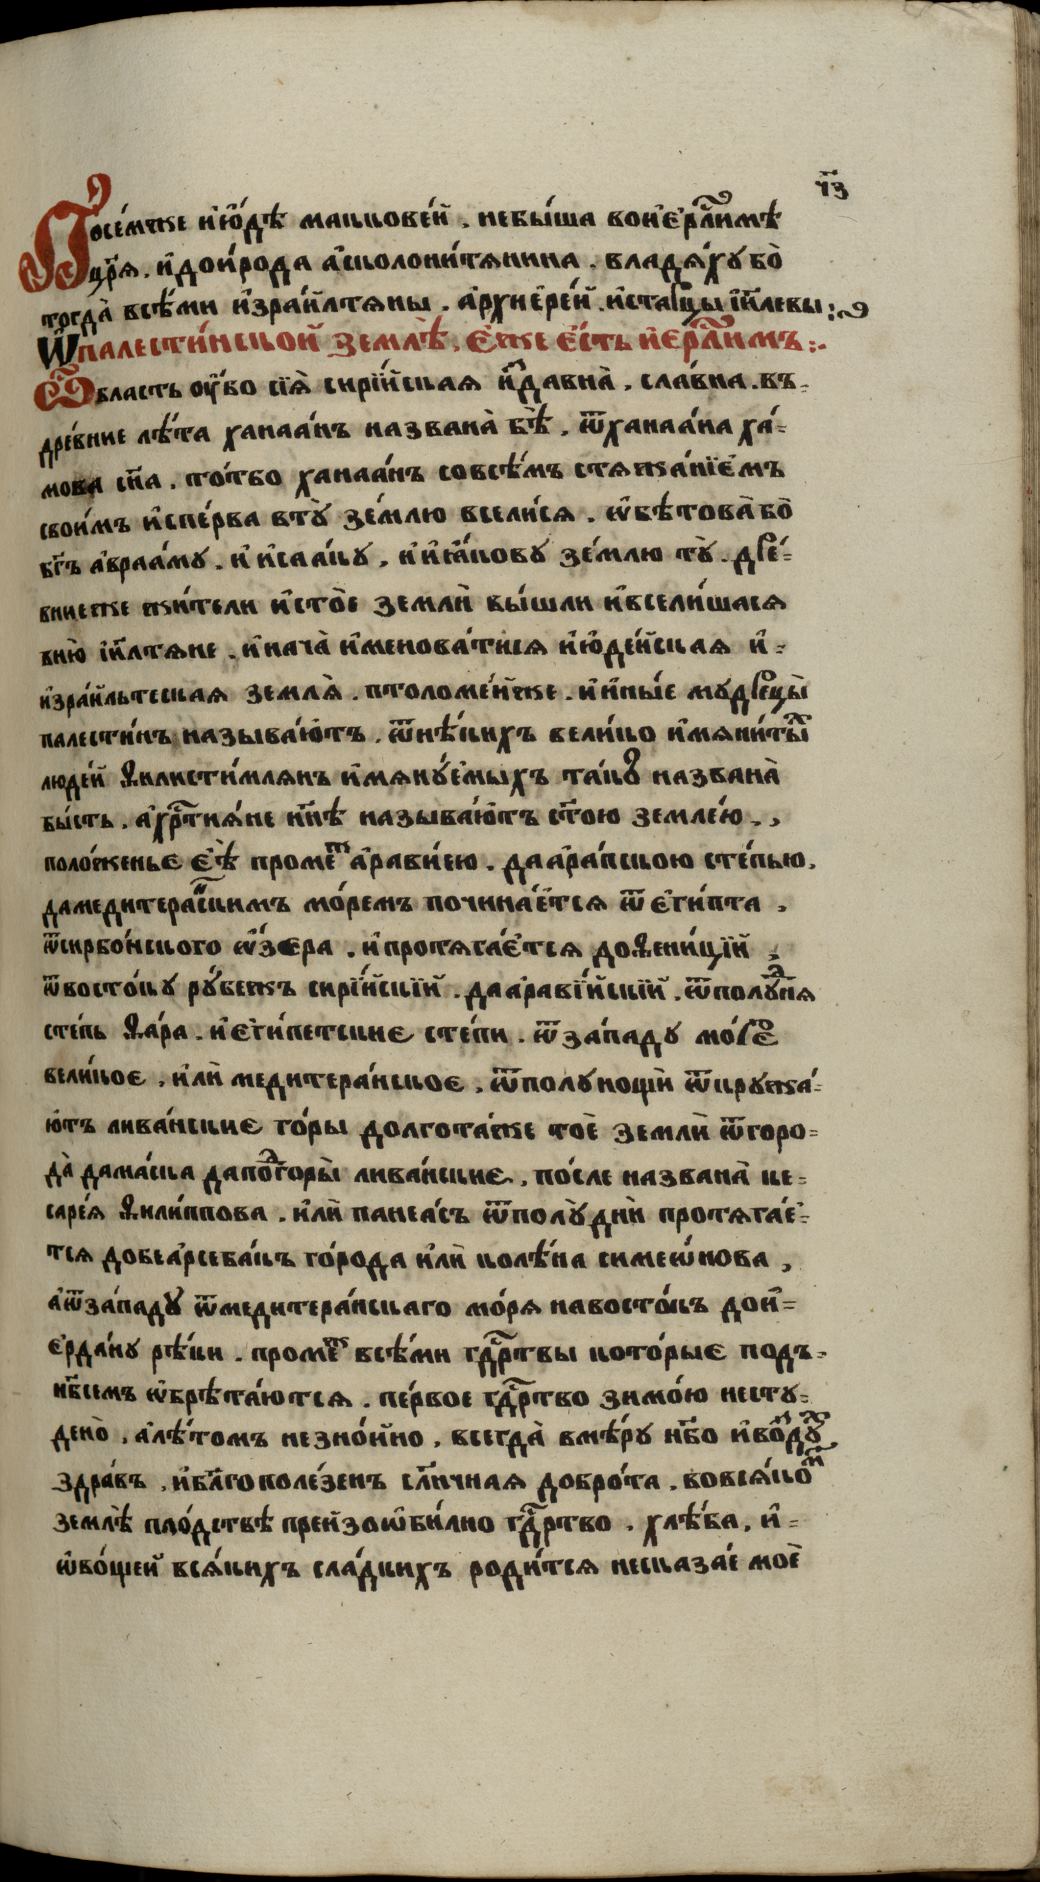 ч҃з
Посе́мже и҆ю҆́дѣ макковѐй, небы́ша вои҆єр҇ли́мѣ
цр҃я̀. и҆дои́рода а҆сколони́тянина. владя́хубо̀
тогда̀ всѣ́ми и҆зра́илтяны. а҆рхиере́й. и҆старцы і҆и҃левы:
Ѡ҆палести́нской землѣ̀, є҆́же є҆́сть и҆єр҇ли́мъ:
О҆́бласть ᲂу҆́бо сїѧ̀ сирі́йская и҆здавна̀, сла́вна. въ-
дре́вние лѣ́та ханаа́нъ названа̀ бѣ̀, ѿханаа́на ха́-
мова сн҃а. по́тбо ханаа́нъ совсѣ́мъ стяжа́нїємъ
свои́мъ и҆спе́рва вту̀ зе́млю всели́ся. ѡ҆бѣтова̀бо̀
бг҃ъ а҆враа́му. и҆ и҆саа́ку, и҆ и҆я́кову зе́млю ту̀. дре́-
вниеже жи́тели и҆сто̀е землѝ вы́шли и҆всели́шася
вню̀ і҆и҃лтяне. и҆нача̀ и҆менова́тися и҆ю҆де́йская и҆-
и҆зра́ильтеская землѧ̀. птоломе́йже. и҆ и҆ны́е мудрецы̀
палести́нъ называ́ютъ. ѿнѣ́кихъ вели́ко и҆мяни́ты҇
люде́й ѳилисти́млянъ и҆мяну́емыхъ та́кѡ названа̀
бы́сть. а҆хр҇тия́не нн҃ѣ называ́ютъ ст҃о́ю земле́ю.,
поло́женье є҆ѣ̀ проме҇ж а҆рави́ею. даа҆ра́пскою сте́пью.
дамедитера́нскимъ мо́ремъ починае́тся ѿ є҆ги́пта,
ѿсирбо́нского ѡ҆́зера. и҆протяга́ется доѳени́цїй,
ѿвосто́ку рубе́жъ сирі́йскїй. даа҆раві́йскїй. ѿполу҇дня
сте́пь ѳа́ра. и҆є҆ги́петские сте́пи. ѿза́паду мо́ре
вели́кое, и҆лѝ медитера́нское, ѿполунощи́ ѿкружа́-
ютъ лива́нские го́ры долгота́же тоѐ землѝ ѿгоро-
да̀ дама́ска дапо҇дгоры̀ лива́нские, по́сле названа̀ ке-
саре́я ѳили́ппова. и҆лѝ панеа́съ ѿполу́днѝ протяга́е-
тся добеа́рсебакъ го́рода и҆лѝ колѣ́на симеѡ́нова,
а҆ѿза́паду ѿмедитера́нскаго мо́ря навосто́къ дои҆-
є҆рда́ну рѣ́ки. проме҇ж всѣ́ми гд҇ртвы кото́рые подъ-
нб҃семъ ѡ҆брѣта́ются. пе́рвое гд҇ртво зимо́ю несту-
дено̀, а҆лѣ́томъ незно́йно, всегда̀ вмѣ́ру нб҃о и҆во҇зду҇х
здра́въ, и҆бл҃гополе́зенъ сл҃ичная добро́та. вовся́ко҇м
землѣ̀ пло́дствѣ преизо́ѡби́лно гд҇ртво. хлѣ́ба, и҆-
ѡ҆во́щей вся́кихъ сла́дкихъ роди́тся несказа́е моѐ